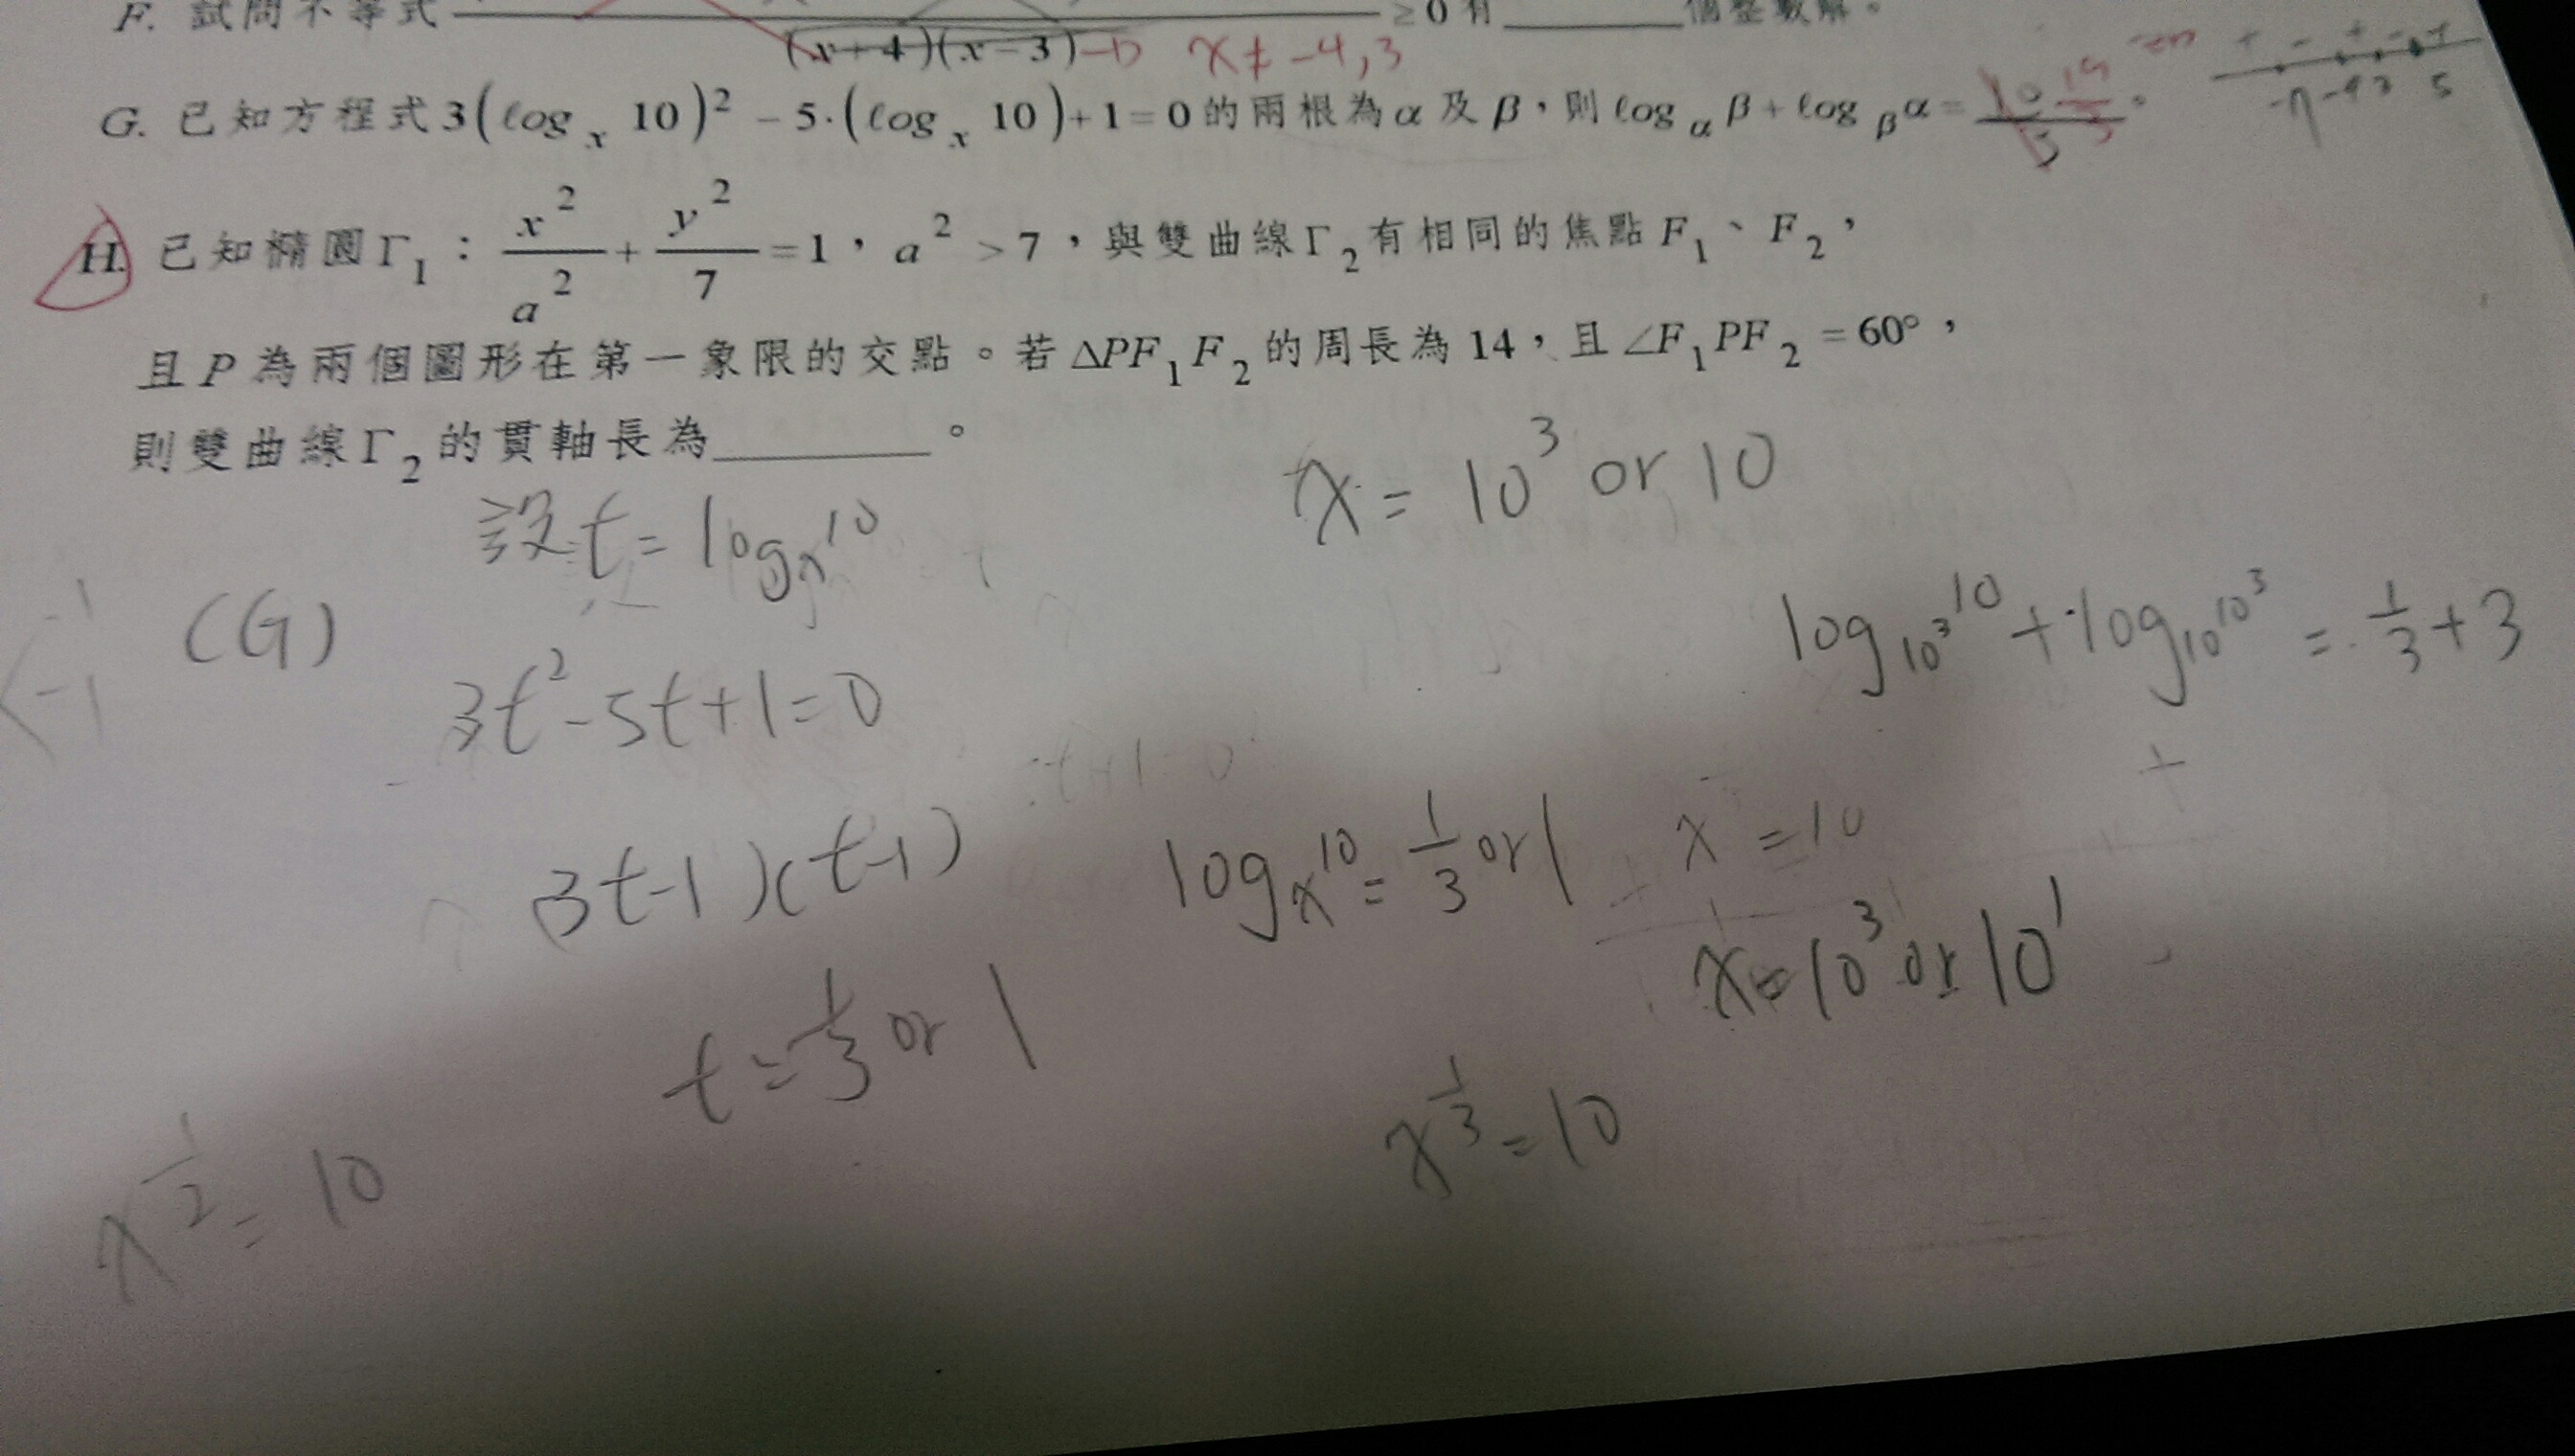 F. 試問不等式 ≥0有______個整數解。
(x+4)(x-3) x≠-4,3
+ - + - +
-7 -4 3 5
G. 已知方程式3(log_x 10)^2 - 5·(log_x 10)+1=0的兩根為α及β,則log_α β+log_β α=
H. 已知橢圓Γ_1:x^2/a^2+y^2/7=1,a^2>7,與雙曲線Γ_2有相同的焦點F_1、F_2,
且P為兩個圖形在第一象限的交點。若ΔPF_1F_2的周長為14,且∠F_1PF_2=60°,
則雙曲線Γ_2的貫軸長為______。
設t=log_x 10
x=10^3 or 10
(G)
log_10^3 10+log_10 10^3=1/3+3
3t^2-5t+1=0
3t-1)(t-1)
log_x 10=1/3 or 1
x=10
x=10^3 or 10^1
t=1/3 or 1
x^1/3=10
x^1/2=10